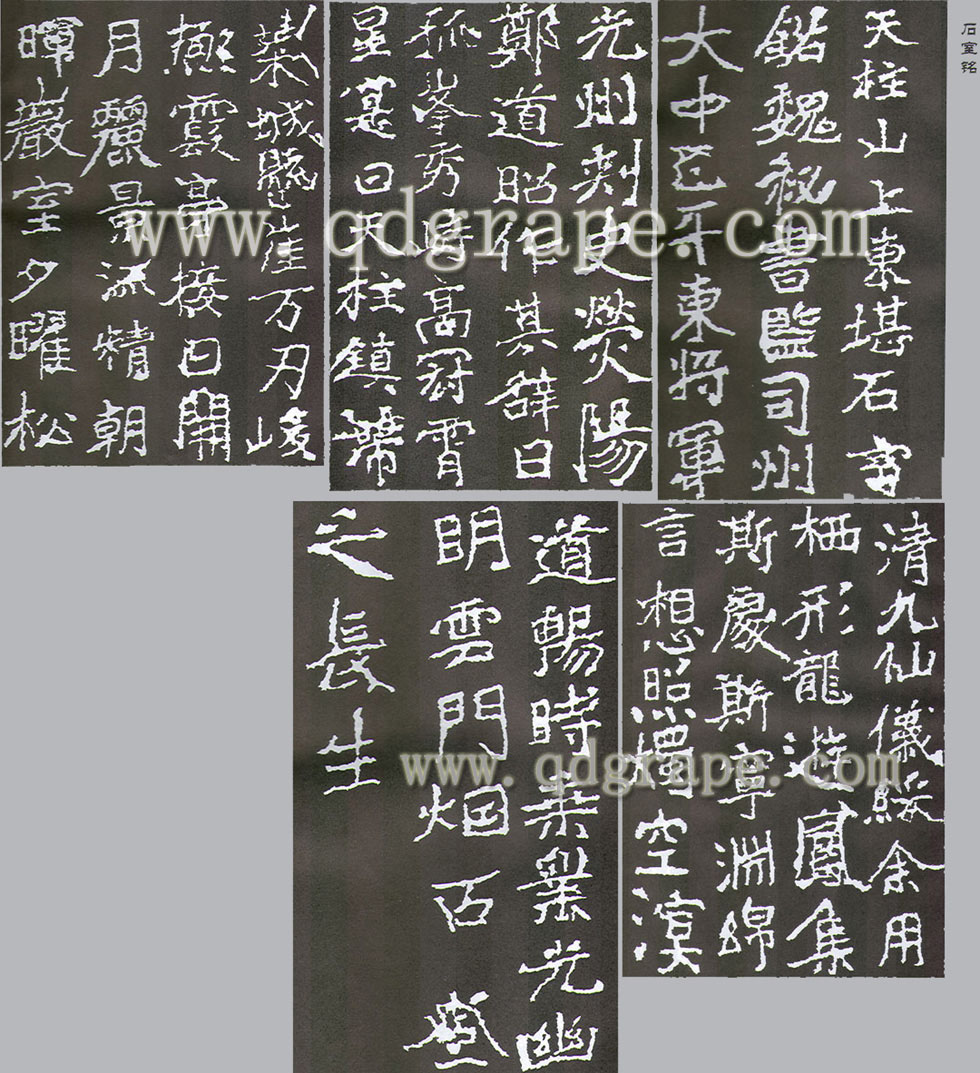 石室銘
天柱山上東堪石室
銘魏秘書監司州
大中正平東將軍
光州刺史熒陽
鄭道昭作其辭曰
孤峯秀峙高冠霄
星寔曰天柱鎮帶
萊城懸崖万刃峻
極霞亭接日開
月麗景流精朝
暉巖室夕曜松
清九仙儀綵余用
栖形龍遊鳳集
斯處斯寧淵綿
言想照燭空溟
道暢時乘業光幽
明雲門烟石登
之長生
www.qdgrape.com
www.qdgrape.com